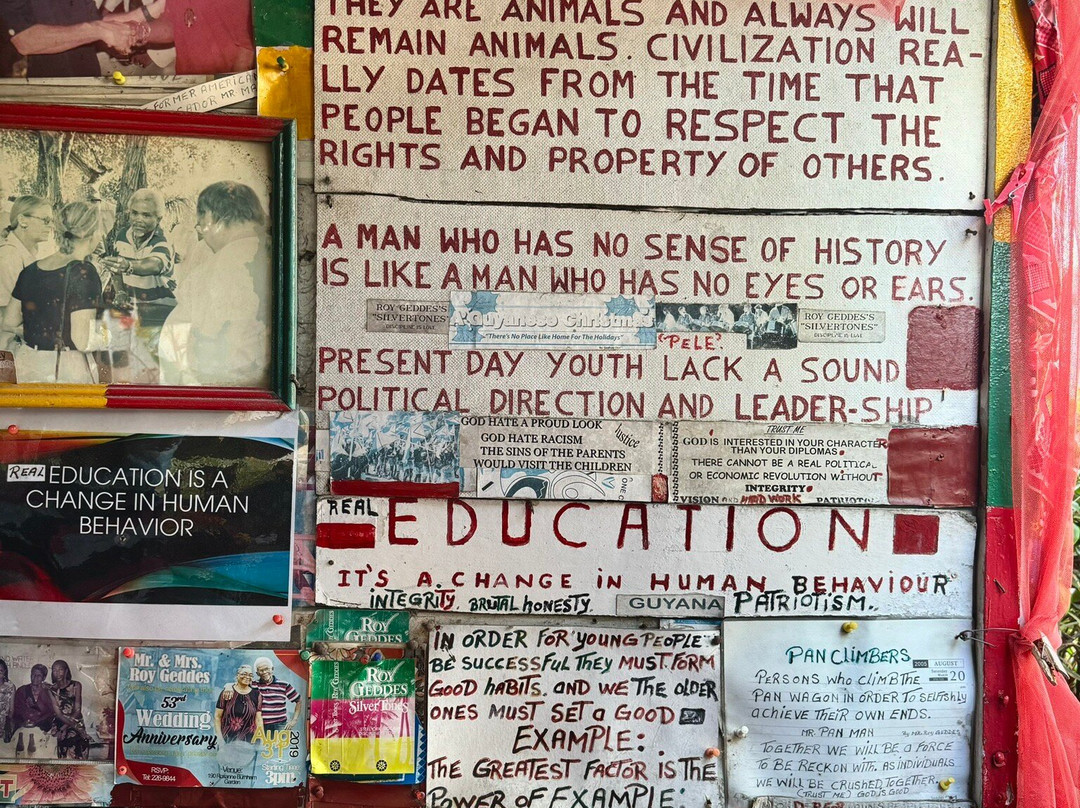 THEY ARE ANIMALS AND ALWAYS WILL
REMAIN ANIMALS. CIVILIZATION REA-
LLY DATES FROM THE TIME THAT
PEOPLE BEGAN TO RESPECT THE
RIGHTS AND PROPERTY OF OTHERS.
FORMER AMERICA
A MAN WHO HAS NO SENSE OF HISTORY
IS LIKE A MAN WHO HAS NO EYES OR EARS.
ROY GEDDES'S
"SILVERTONES"
DISCIPLINE IS LOVE
A Guyanese Christmas
"There's No Place Like Home For The Holidays"
ROY GEDDES'S
"SILVERTONES"
DISCIPLINE IS LOVE
"PELE".
PRESENT DAY YOUTH LACK A SOUND
POLITICAL DIRECTION AND LEADER-SHIP
GOD HATE A PROUD LOOK
GOD HATE RACISM
THE SINS OF THE PARENTS
WOULD VISIT THE CHILDREN
Justice
TRUST ME
GOD IS INTERESTED IN YOUR CHARACTER
THAN YOUR DIPLOMAS.
THERE CANNOT BE A REAL POLITICAL
OR ECONOMIC REVOLUTION WITHOUT
INTEGRITY.
VISION AND HARD WORK PATRIOTI
REAL EDUCATION IS A
CHANGE IN HUMAN
BEHAVIOR
REAL EDUCATION
IT'S A CHANGE IN HUMAN BEHAVIOUR
INTEGRITY. BRUTAL HONESTY. GUYANA PATRIOTISM..
Mr. & Mrs.
Roy Geddes
53rd
Wedding
Anniversary
Aug
31
2019
3pm
RSVP:
Tel: 226-9844
Venue:
190 Roxanne Burnham
Garden
ROY
GEDDES
ROY
GEDDES
Silver Tones
IN ORDER FOR YOUNG PEOPLE
BE SUCCESSFUL THEY MUST FORM
GOOD HABITS. AND WE THE OLDER
ONES MUST SET a GOOD
EXAMPLE:
THE GREATEST FACTOR IS THE
POWER OF EXAMPLE:
PAN CLIMBERS
2005 AUGUST
20
PERSONS WHO CLIMB THE
PAN WAGON IN ORDER TO SELFISHLY
ACHIEVE THEIR OWN ENDS.
MR. PAN MAN
By MR. Roy GEDDES
TOGETHER WE WILL BE A FORCE
TO BE RECKON WITH. AS INDIVIDUALS
WE WILL BE CRUSHED TOGETHER.
(TRUST ME) GOD IS GOOD